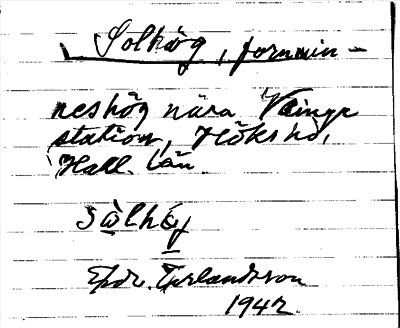 Solhög, fornmin-
neshög nära Veinge
station, Höks hd,
Hall. län.
sòlhǿg
Erlandsson
1942.